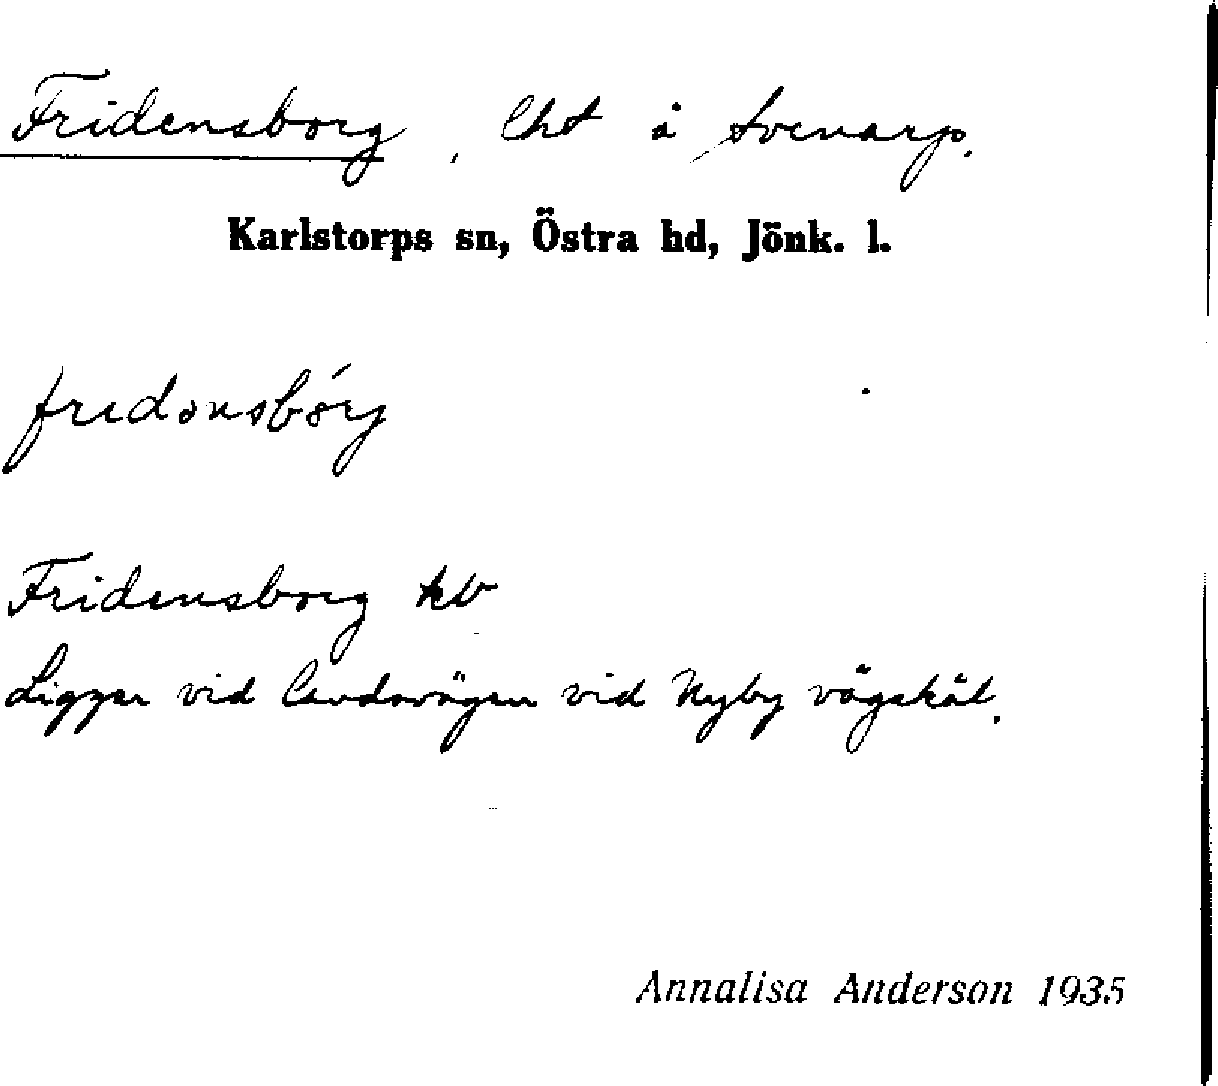 Fridensborg, lht å Svenarp.
Karlstorps sn, Östra hd, Jönk. l.
fridənsbór̡
Fridensborg kv
Ligger vid landsvägen vid Nyby vägskäl.
Annalisa Anderson 1935